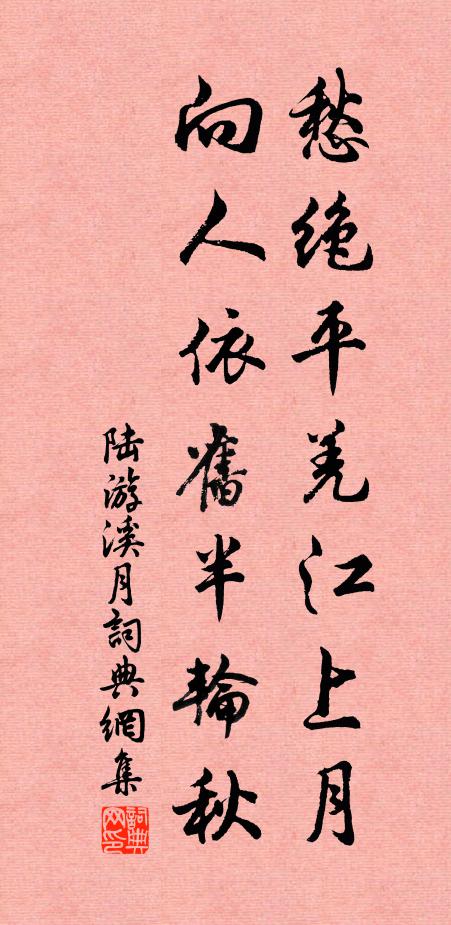 愁绝平羌江上月
向人依舊半輪秋
陆游溪月詞典網集
詞典
网印